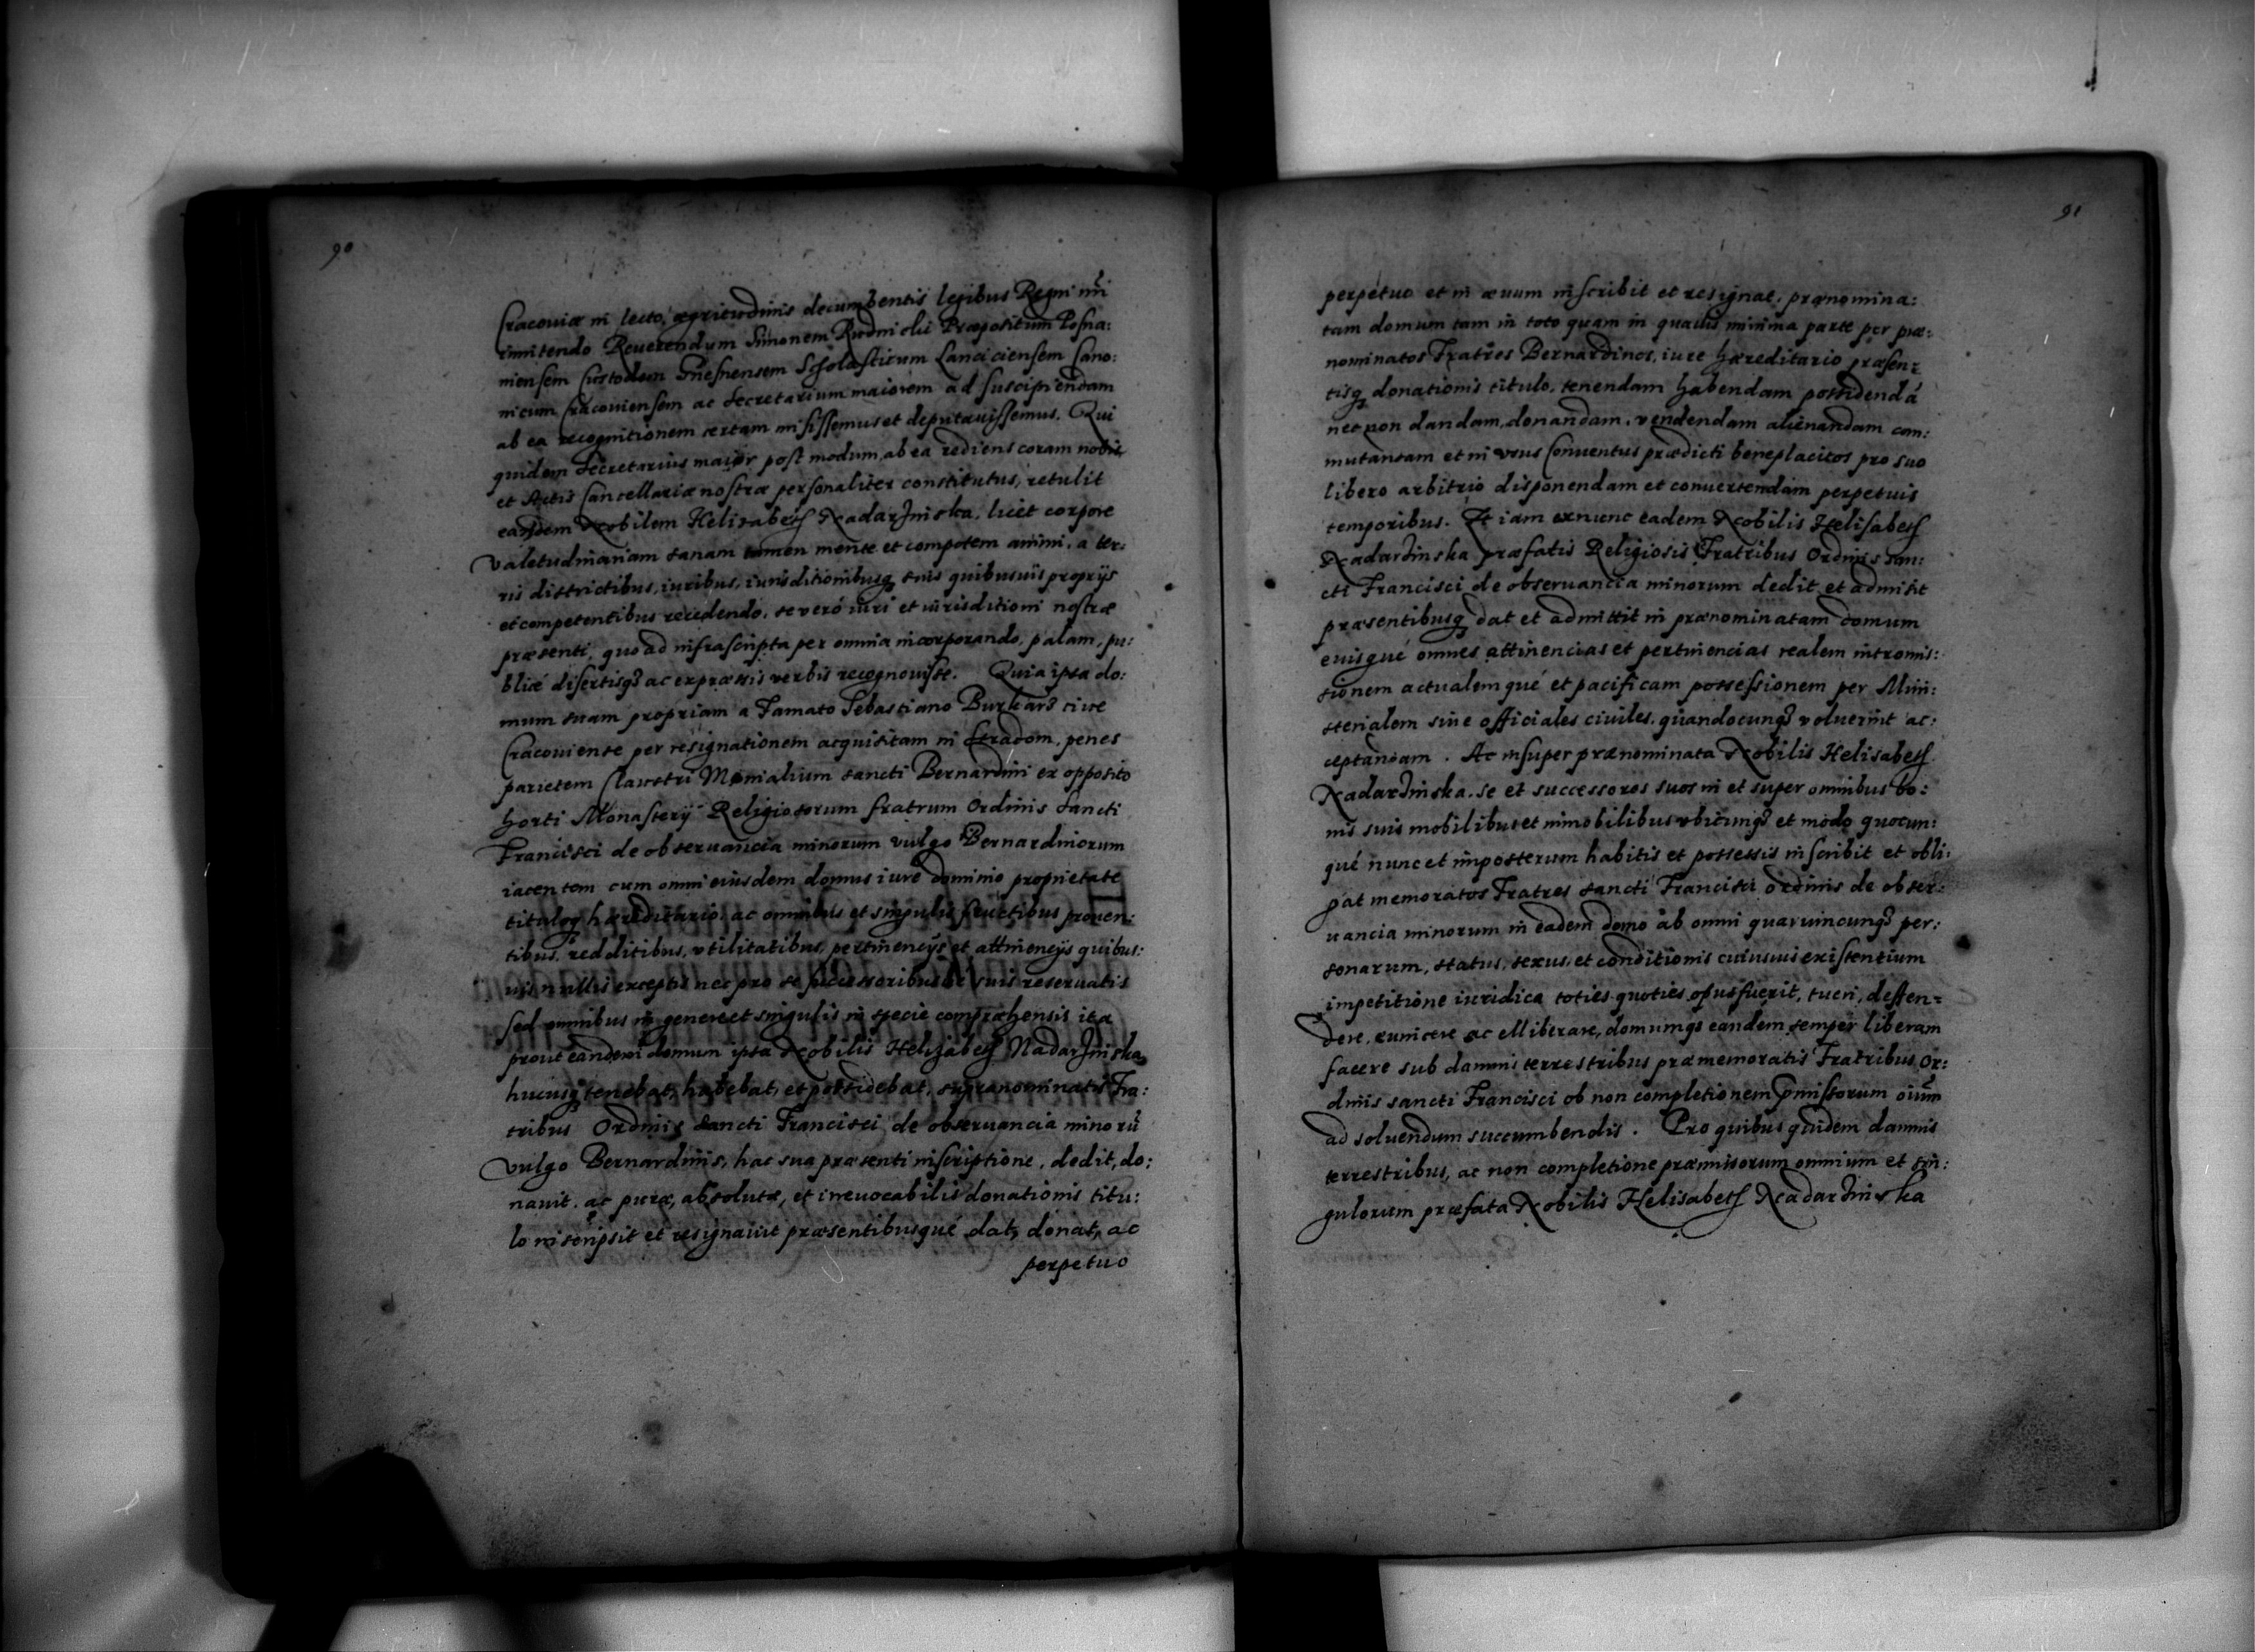 90
Cracoviæ in lecto, ægritudinis decumbentis legibus Regni nr̃i
innitendo Reuerendum Simonem Rudnicki Præpositum Posna:
niensem Custodem Gnesnensem Scholasticum Lanciciensem Cano:
nicum Cracouiensem ac Secretarium maiorem ad suscipiendam
ab ea recognitionem certam misissemus et deputauissemus. Qui
quidem Secretarius maior post modum, ab ea rediens coram nobis
et Actis Cancellariæ nostræ personaliter constitutus, retulit
eandem Nobilem Helisabeth Nadarzinska, licet corpore
valetudinariam sanam tamen mente et compotem animi, a ter:
ris districtibus, iuribus, iurisditionibusq suis quibusuis proprijs
et competentibus recedendo, se veró iuri et iurisditioni nostræ
præsenti, quo ad infrascripta per omnia incorporando, palam, pu:
blicé disertisq ac expræssis verbis recognouisse. Quia ipsa do:
mum suam propriam a Famato Sebastiano Burkard ciue
Cracouiense per resignationem acquisitam in Stradom, penes
parietem Claustri Monialium sancti Bernardini ex opposito
horti Monasterij Religiosorum fratrum Ordinis Sancti
Francisci de obseruancia minorum vulgo Bernardinorum
iacentem cum omni eiusdem domus iure dominio proprietate
tituloq hæreditario, ac omnibus et singulis fructibus prouen:
tibus, redditibus, vtilitatibus, pertinencijs et attinencijs quibus:
uis nullis exceptis nec pro se successoribus suis reseruatis
sed omnibus in genere et singulis in specie compræhensis ita
prout eandem domum ipsa Nobilis Helizabeth Nadarzinska
hucusq tenebat, habebat, et possidebat, supranominatis Fra:
tribus Ordinis Sancti Francisci de obseruancia minorũ
vulgo Bernardinis, hac sua præsenti inscriptione, dedit, do:
nauit, ac puræ, absolutæ, et irreuocabilis donationis titu:
lo inscripsit et resignauit præsentibusqué dat, donat, ac
perpetuo
91
perpetuo et in æuum inscribit et resignat, prænomina:
tam domum tam in toto quam in quauis minima parte per præ:
nominatos Fratres Bernardinos, iure hæreditario præsen:
tisq donationis titulo, tenendam habendam possidendá
nec non dandam, donandam, vendendam alienandam com:
mutandam et in vsus Conuentus prædicti beneplacitos pro suo
libero arbitrio disponendam et conuertendam perpetuis
temporibus. Et iam exnunc eadem Nobilis Helisabeth
Nadarzinska præfatis Religiosis Fratribus Ordinis san:
cti Francisci de obseruancia minorum dedit et admisit
præsentibusq dat et admittit in prænominatam domum
eiusqué omnes attinencias et pertinencias realem intromis:
sionem actualemqué et pacificam possessionem per Mini:
sterialem siue officiales ciuiles, quandocunq voluerint ac:
ceptandam. Ac insuper prænominata Nobilis Helisabeth
Nadarzinska, se et successores suos in et super omnibus bo:
nis suis mobilibus et inmobilibus vbicunq et modo quocun:
qué nunc et imposterum habitis et possessis inscribit et obli:
gat memoratos Fratres sancti Francisci ordinis de obser:
uancia minorum in eadem domo ab omni quaruincunq per:
sonarum, status, sexus, et conditionis cuiusuis existentium
impetitione iuridica toties quoties opus fuerit, tueri, deffen=
dere, euincere ac elliberare, domumq eandem semper liberam
facere sub damnis terrestribus præmemoratis Fratribus Or:
dinis sancti Francisci ob non completionem p̃missorum oium̃
ad soluendum succumbendis. Pro quibus quidem damnis
terrestribus, ac non completione præmissorum omnium et sin:
gulorum præfata Nobilis Helisabeth Nadarzinska